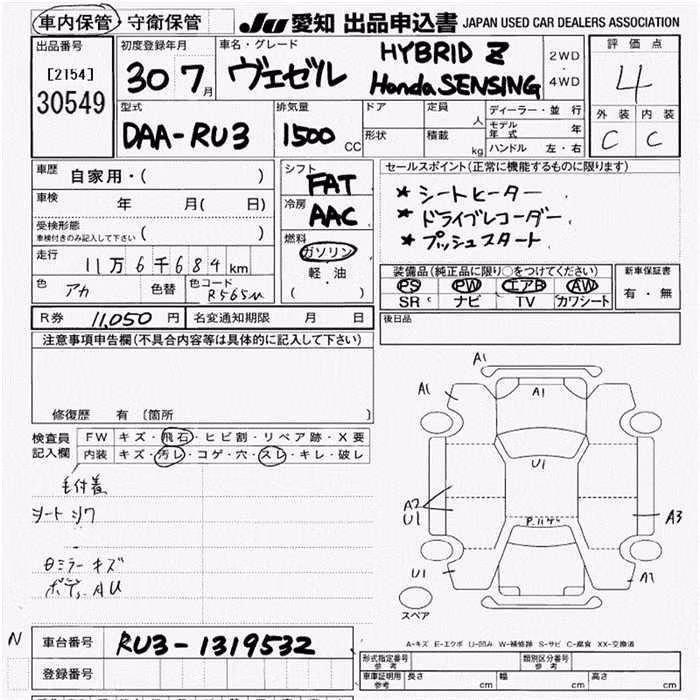 車内保管・守衛保管 JU 愛知 出品申込書 JAPAN USED CAR DEALERS ASSOCIATION
出品番号 初度登録年月 車名・グレード 評価点
[2154] 30 7月 ヴェゼル HYBRID Z 2WD・4WD 4
30549 Honda SENSING
型式 排気量 ドア 定員 人 ディーラー・並行 外装 内装
DAA-RU3 1500 CC 形状 積載 kg モデル年式 年 C C
ハンドル 左・右
車歴 自家用・( ) シフト FAT セールスポイント(正常に機能するものに限ります)
車検 年 月( 日) 冷房 AAC ★シートヒーター、
受検形態 車検付きのみ記入して下さい ( ) ★ドライブレコーダー、
燃料 ガソリン ★プッシュスタート、
走行 11万6千684km 軽・油 ( )
装備品(純正品に限り○をつけてください) 新車保証書
色 アカ 色替 色コード R565M PS PW エアB AW 有・無
SR ナビ TV カワシート
R券 11,050円 名変通知期限 月 日 後日品
注意事項申告欄(不具合内容等は具体的に記入して下さい)
修復歴 有〔箇所 〕
検査員記入欄 FW キズ・飛石・ヒビ割・リペア跡・X要
内装 キズ・汚レ・コゲ・穴・スレ・キレ・破レ
毛付着
シートシワ
ミラーキズ
ボディーAU
A1
A1 A1
U1
A2
U1 A3
U1
スペア
A-キズ E-エクボ U-凹み W-補修跡 S-サビ C-腐食 XX-交換済
N 車台番号 RU3-1319532 形式指定番号 参考 類別区分番号 参考
登録番号 車庫証明用 参考 長さ cm 幅 cm 高さ cm